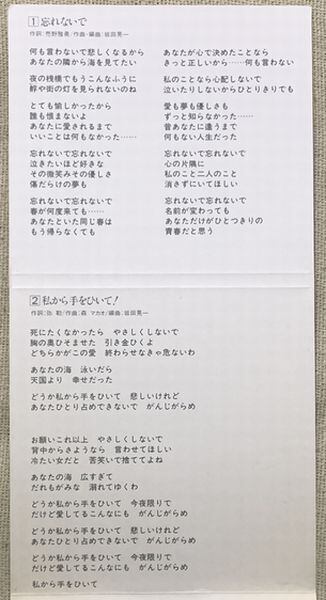 1 忘れないで
作詞:売野雅勇/作曲・編曲:坂田晃一
何も言わないで悲しくなるから
あなたの隣から海を見てたい
夜の桟橋でもうこんなふうに
船や街の灯を見られないのね
とても愉しかったから
誰も恨まないよ
あなたに愛されるまで
いいことは何もなかった……
忘れないで忘れないで
泣きたいほど好きな
その微笑みその優しさ
傷だらけの夢も
忘れないで忘れないで
春が何度来ても……
あなたといた同じ春は
もう帰らなくても
あなたが心で決めたことなら
きっと正しいから……何も言わない
私のことなら心配しないで
泣いたりしないからひとりきりでも
愛も夢も優しさも
ずっと知らなかった……
昔あなたに逢うまで
何もない人生だった
忘れないで忘れないで
心の片隅に
私のこと二人のこと
消さずにいてほしい
忘れないで忘れないで
名前が変わっても
あなただけがひとつきりの
青春だと思う
2 私から手をひいて!
作詞:弥 勒/作曲:森 マカオ/編曲:坂田晃一
死にたくなかったら やさしくしないで
胸の奥ひそませた 引き金ひくよ
どちらかがこの愛 終わらせなきゃ危ないわ
あなたの海 泳いだら
天国より 幸せだった
どうか私から手をひいて 悲しいけれど
あなたひとり占めできないで がんじがらめ
お願いこれ以上 やさしくしないで
背中からさようなら 言わせてほしい
冷たい女だと 苦笑いで捨ててよね
あなたの海 広すぎて
だれもがみな 溺れてゆくわ
どうか私から手をひいて 今夜限りで
だけど愛してるこんなにも がんじがらめ
どうか私から手をひいて 悲しいけれど
あなたひとり占めできないで がんじがらめ
どうか私から手をひいて 今夜限りで
だけど愛してるこんなにも がんじがらめ
私から手をひいて